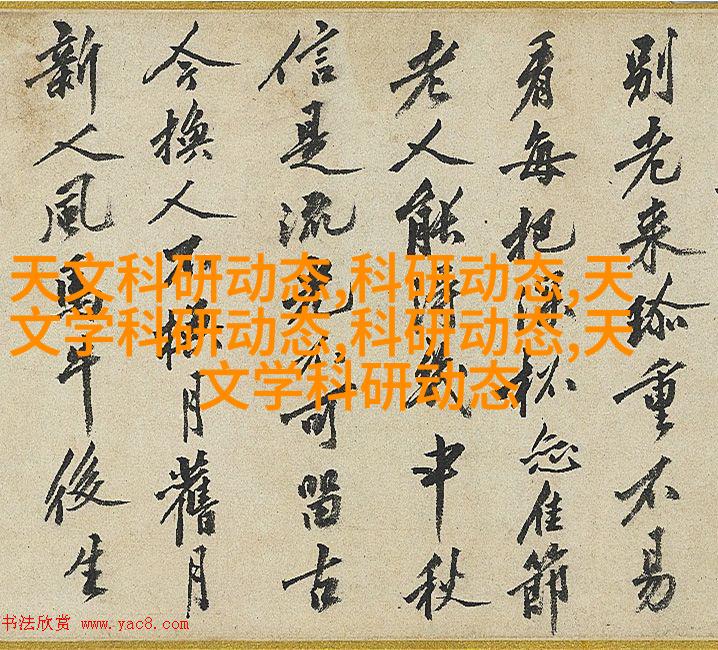 別老来珎重不易
看每把深杯佳節
老人能得幾中秋
信是流光不可留古
今換人不換月舊月
新人風馬牛後生
天文科研动态,科研动态,天
文学科研动态,科研动态,天
文学科研动态
书法欣赏 www.yac8.com